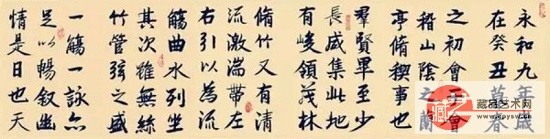 永和九年歲
在癸丑暮春
之初會于會
稽山陰之蘭
亭脩稧事也
羣賢畢至少
長咸集此地
有峻領茂林
脩竹又有清
流激湍帶左
右引以為流
觴曲水列坐
其次雖無絲
竹管弦之盛
一觴一詠亦
足以暢叙幽
情是日也天